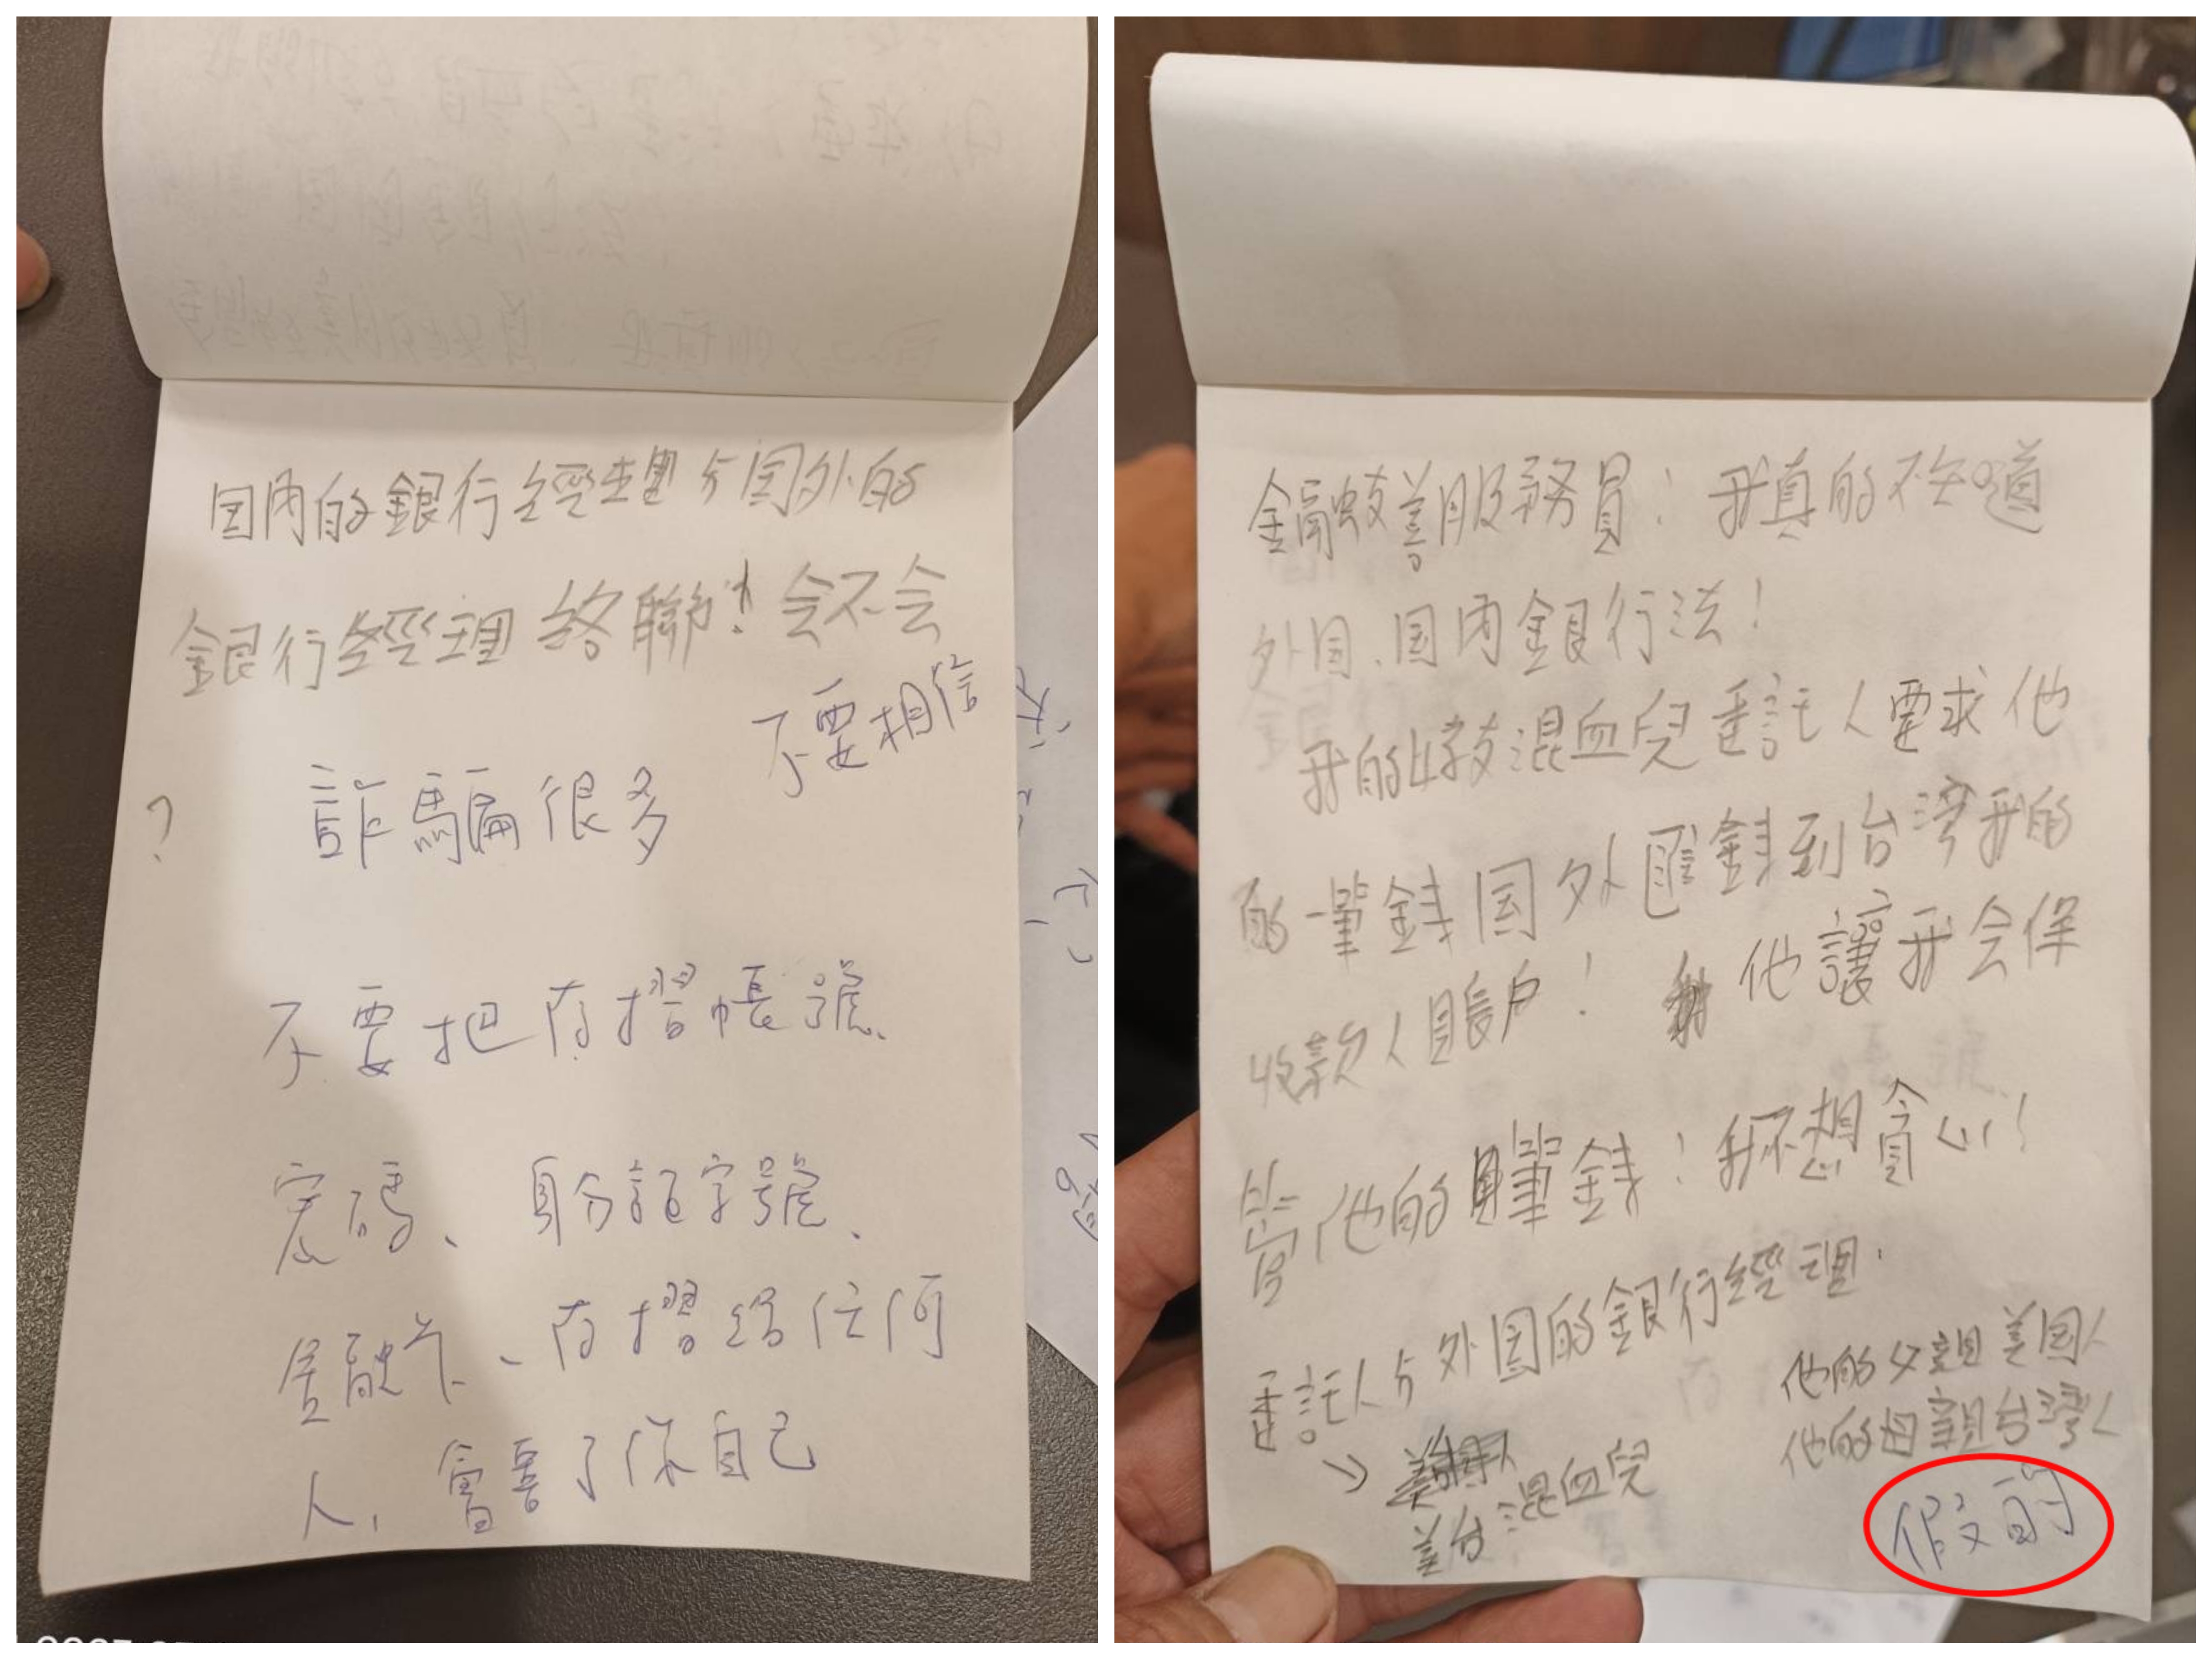 国內的銀行經理与国外的
銀行經理 絡聯! 会不会
不要相信
? 詐騙很多
不要把存摺帳號、
密碼、身分証字號、
金融卡、存摺給任何
人,會害了你自己
金融友善服務員:我真的不知道
外国、国內銀行法!
我的好友混血兒委託人要求他
的一筆錢国外匯錢到台湾我的
收款人賬戶! 他讓我会保
管他的筆錢!我不想貪心!
委託人与外国的銀行經理.
→ 美台混血兒
他的父親美国人
他的母親台灣人
假的